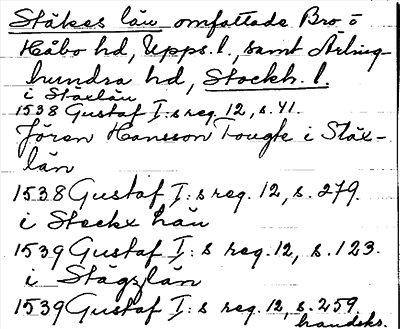 Stäkes län omfattade Bro o
Håbo hd, Upps. l., samt Ärling-
hundra hd, Stockh. l.
i Stäxlän
1538 Gustaf I:s reg. 12, s. 41.
Jören Hansson Tougk i Stäx-
län
1538 Gustaf I:s reg. 12, s. 279.
i Steckx län
1539 Gustaf I:s reg. 12, s. 123.
i Stägxlän
1539 Gustaf I:s reg. 12, s. 259
handskr.